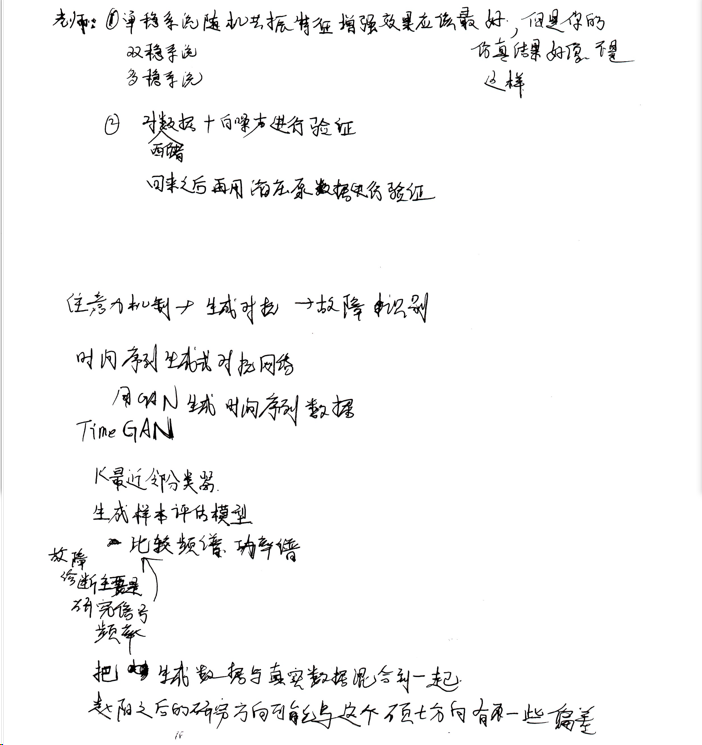 老师：①单稳系统随机共振特征增强效果应该最好，但是你的
双稳系统 仿真结果好像不是
多稳系统 这样
② 对数据+白噪声进行验证
西储
回来之后再用 原数据进行验证
注意力机制+生成对抗→故障识别
时间序列生成式对抗网络
用GAN生成时间序列数据
TimeGAN
K最近邻分类器
生成样本评估模型
比较频谱、功率谱
故障
诊断主要是
研究信号
频率
把生成数据与真实数据混合到一起
之后的研究方向可能与这个硕士方向有一些偏差